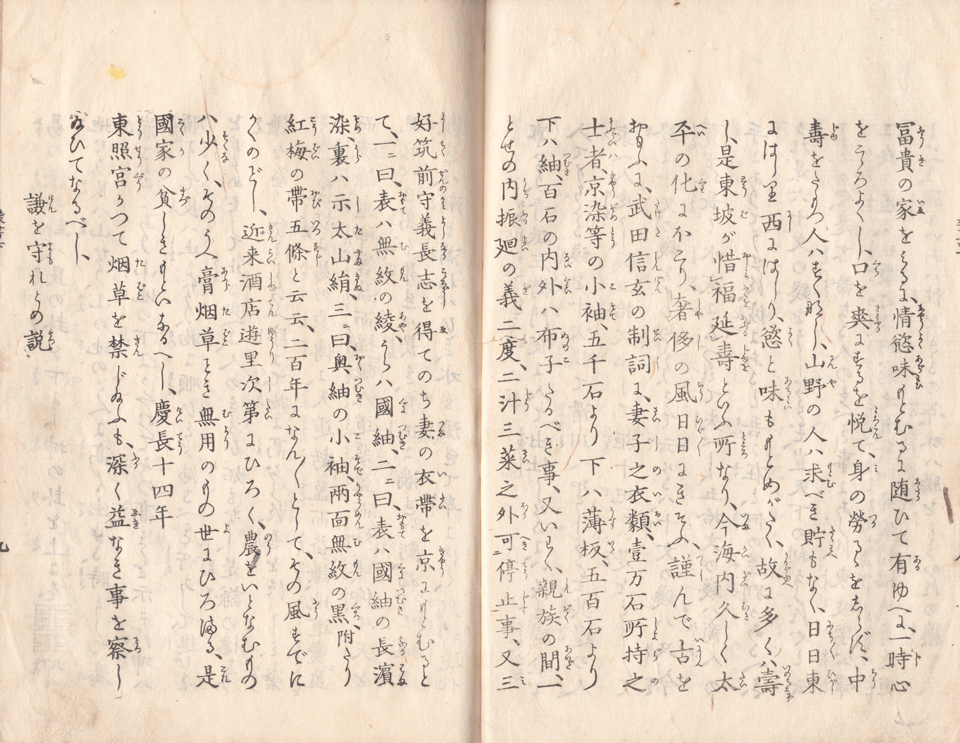 冨貴の家をみるに、情慾味もとむるに随ひて有ゆへに、一時心
をこゝろよくし、口を爽にするを悦て、身の勞るゝをしらず、中
壽をたもつ人ハすくなし、山野の人ハ求べき貯もなく、日日東
にはしり西にはしり、慾と味ももとめがたく、故に多くハ壽
し、是東坡が惜福延壽といふ所なり、今海内久しく太
平の化にならひ、奢侈の風日日にきそふ、謹んで古を
おもふに、武田信玄の制詞に、妻子之衣類、壹万石所持之
士者、京染等の小袖、五千石より下ハ薄板、五百石より
下ハ紬、百石の内外ハ布子たるべき事、又いはく、親族の間、一
とせの内振廻の義二度、二汁三菜之外可停止事、又三
好筑前守義長志を得てのち妻の衣帶を京にもとむると
て、一ニ曰、表ハ無紋の綾、うらハ國紬、二ニ曰、表ハ國紬の長濱
染、裏ハ示太山絹、三ニ曰、奥紬の小袖、両面無紋の黒、附たり
紅梅の帶五條と云云、二百年になん〳〵として、その風すでに
かくのごとし、近来酒店遊里次第にひろく、農をいとなむもの
ハ少く、そのうへ膏烟草とき無用のもの世にひろまる、是
國家の貧しきもとひなるへし、慶長十四年
東照宮かつて烟草を禁じ給ふも、深く益なき事を察し
給ひてなるべし、
謙を守れるの説